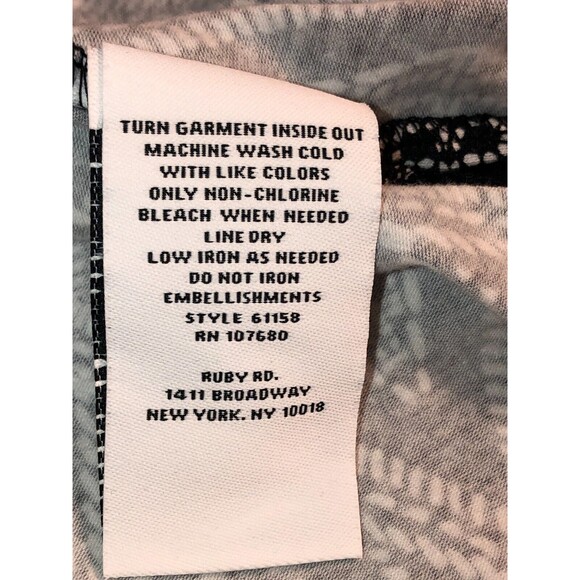 TURN GARMENT INSIDE OUT
MACHINE WASH COLD
WITH LIKE COLORS
ONLY NON-CHLORINE
BLEACH WHEN NEEDED
LINE DRY
LOW IRON AS NEEDED
DO NOT IRON
EMBELLISHMENTS
STYLE 61158
RN 107680
RUBY RD.
1411 BROADWAY
NEW YORK, NY 10018